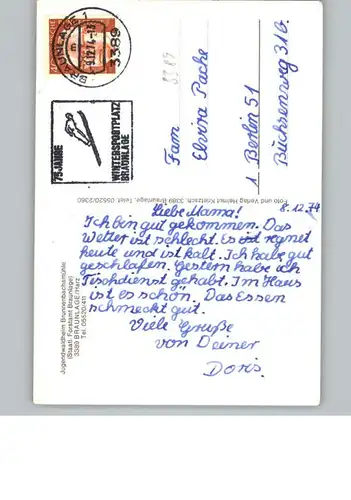 BRAUNLAGE 1
9.12.74-13
3389
75 JAHRE
WINTERSPORTPLATZ
BRAUNLAGE
3389
Fam
Elvira Pache
1 Berlin 51
Büchsenweg 31G.
Foto und Verlag Helmut Kretzsch, 3389 Braunlage, Telef. 05520/2360
Jugendwaldheim Brunnenbachsmühle
(Staatl. Forstamt Braunlage)
3389 BRAUNLAGE/Harz
Tel. 05520/411
8.12.74
Liebe Mama!
Ich bin gut gekommen. Das
Wetter ist schlecht. Es ist regnet
heute und ist kalt. Ich habe gut
geschlafen. Gestern habe ich
Tischdienst gehabt. Im Haus
ist es schön. Das Essen
schmeckt gut.
Viele Grüße
von Deiner
Doris.